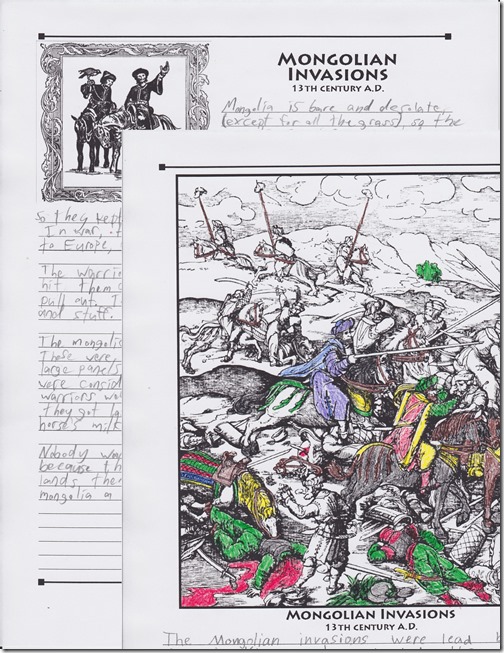 MONGOLIAN
INVASIONS
13TH CENTURY A.D.
Mongolia is bare and desolate
(except for all the grass), so the
So they kept
In war,
to Europe,
The warri
hit them
pull out. I
and stuff.
The mongolia
These were,
large panels
were consid
warriors wo
they got
horse's milk
Nobody
because th
lands the
mongolia a
MONGOLIAN INVASIONS
13TH CENTURY A.D.
The Mongolian invasions were lead